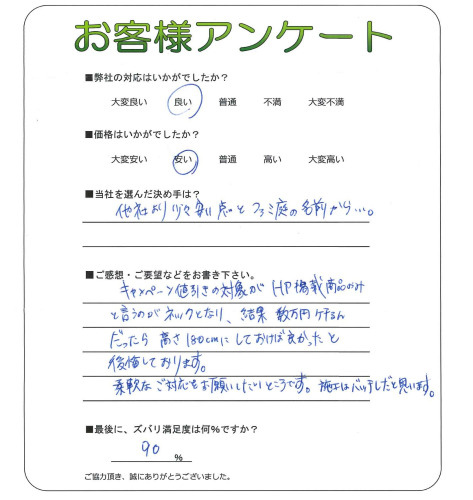 お客様アンケート
■弊社の対応はいかがでしたか？
大変良い 良い 普通 不満 大変不満
■価格はいかがでしたか？
大変安い 安い 普通 高い 大変高い
■当社を選んだ決め手は？
他社より少々安い点と ファミ庭の名前から…。
■ご感想・ご要望などをお書き下さい。
キャンペーン値引きの対象が HP掲載商品のみ
と言うのがネックとなり、結果 数万円ケチるん
だったら 高さ180cmにしておけば良かったと
後悔しております。
柔軟なご対応をお願いしたいところです。施工はバッチしだと思います。
■最後に、ズバリ満足度は何％ですか？
90 ％
ご協力頂き、誠にありがとうございました。